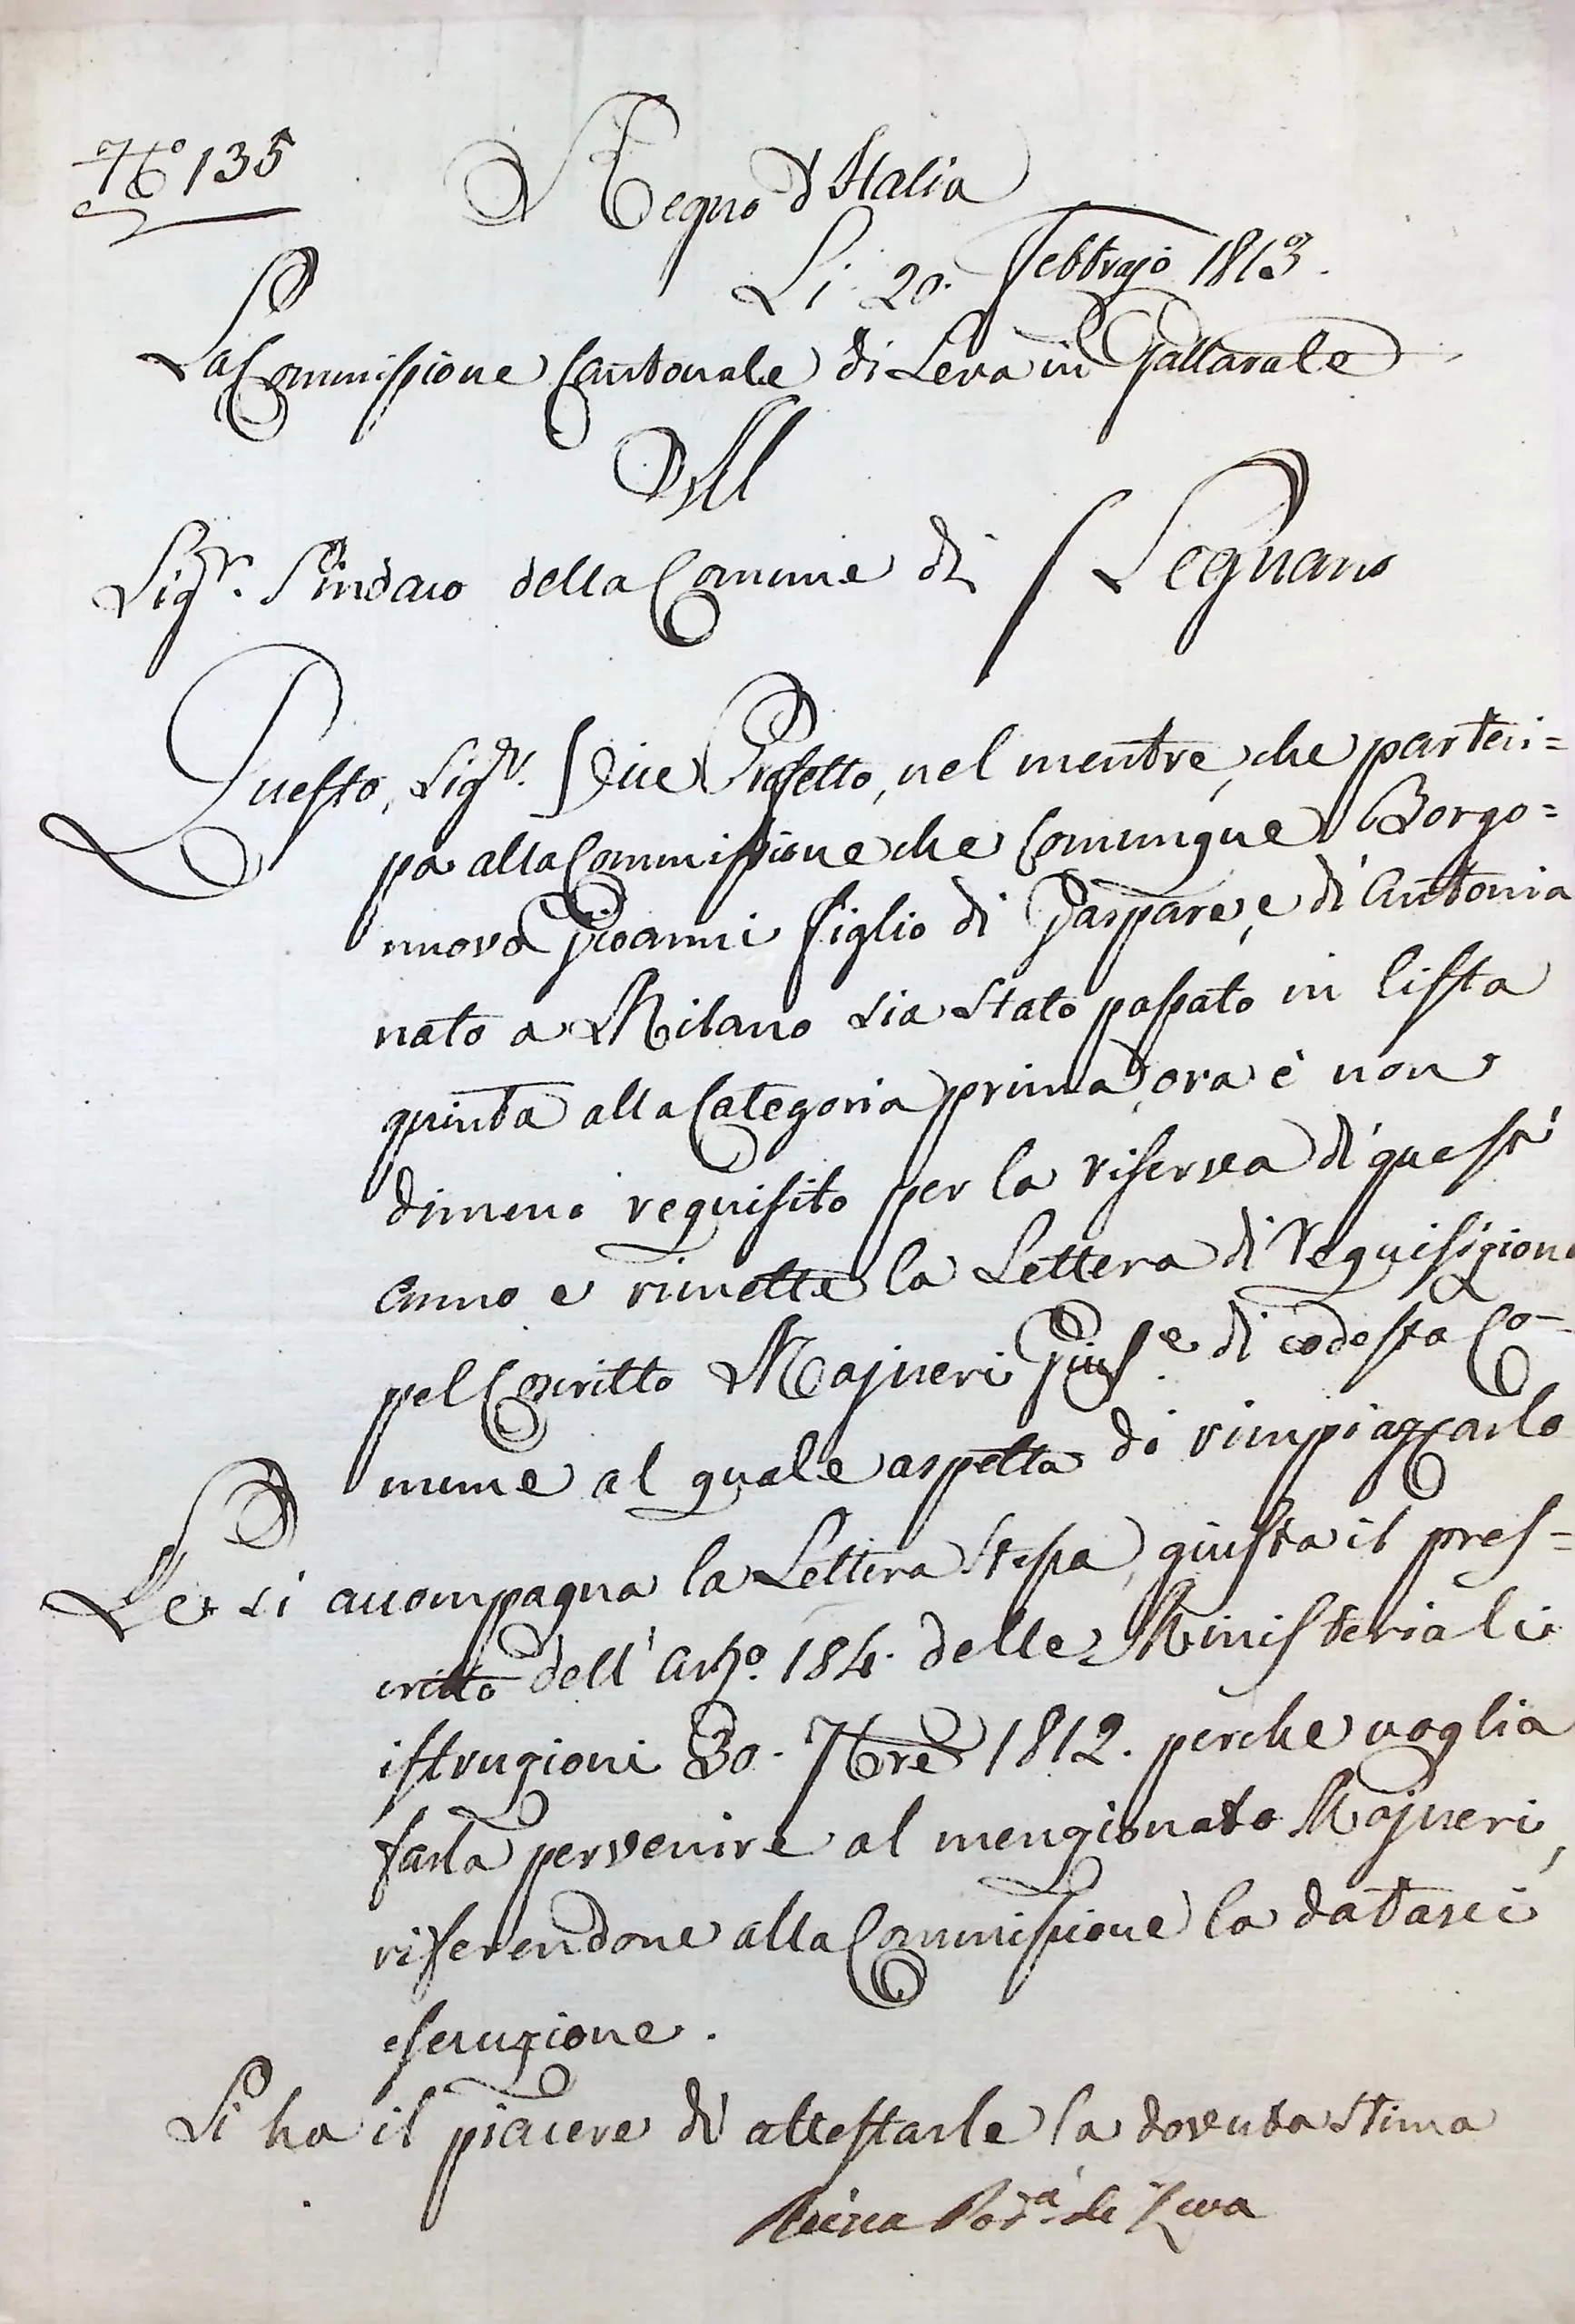 N.° 135
Regno d'Italia
Li 20. Febbrajo 1813.
La Commissione Cantonale di Leva in Gallarate
Al
Sig.r Sindaco della Comune di / Legnano
Questo Sig.r Vice Prefetto, nel mentre, che parteci=
pa alla Commissione che comunque Borgo=
nuovo Gioanni figlio di Gaspare, e di Antonia
nato a Milano sia stato passato in lista
quinta alla Categoria prima, ora è non
dimeno requisito per la riserva di quest'
anno e rimette la Lettera di requisizione
pel Coscritto Majneri Gius.e di codesta Co-
mune al quale aspetta di rimpiazzarlo
Le si accompagna la Lettera stessa, giusta il pres=
critto dell'Art.o 184. delle Ministeriali
istruzioni 30. 7bre 1812. perche voglia
farla pervenire al menzionato Majneri,
riferendone alla Commissione la datasi
esecuzione.
Si ha il piacere di attestarle la dovuta stima
Pod.à di Leva